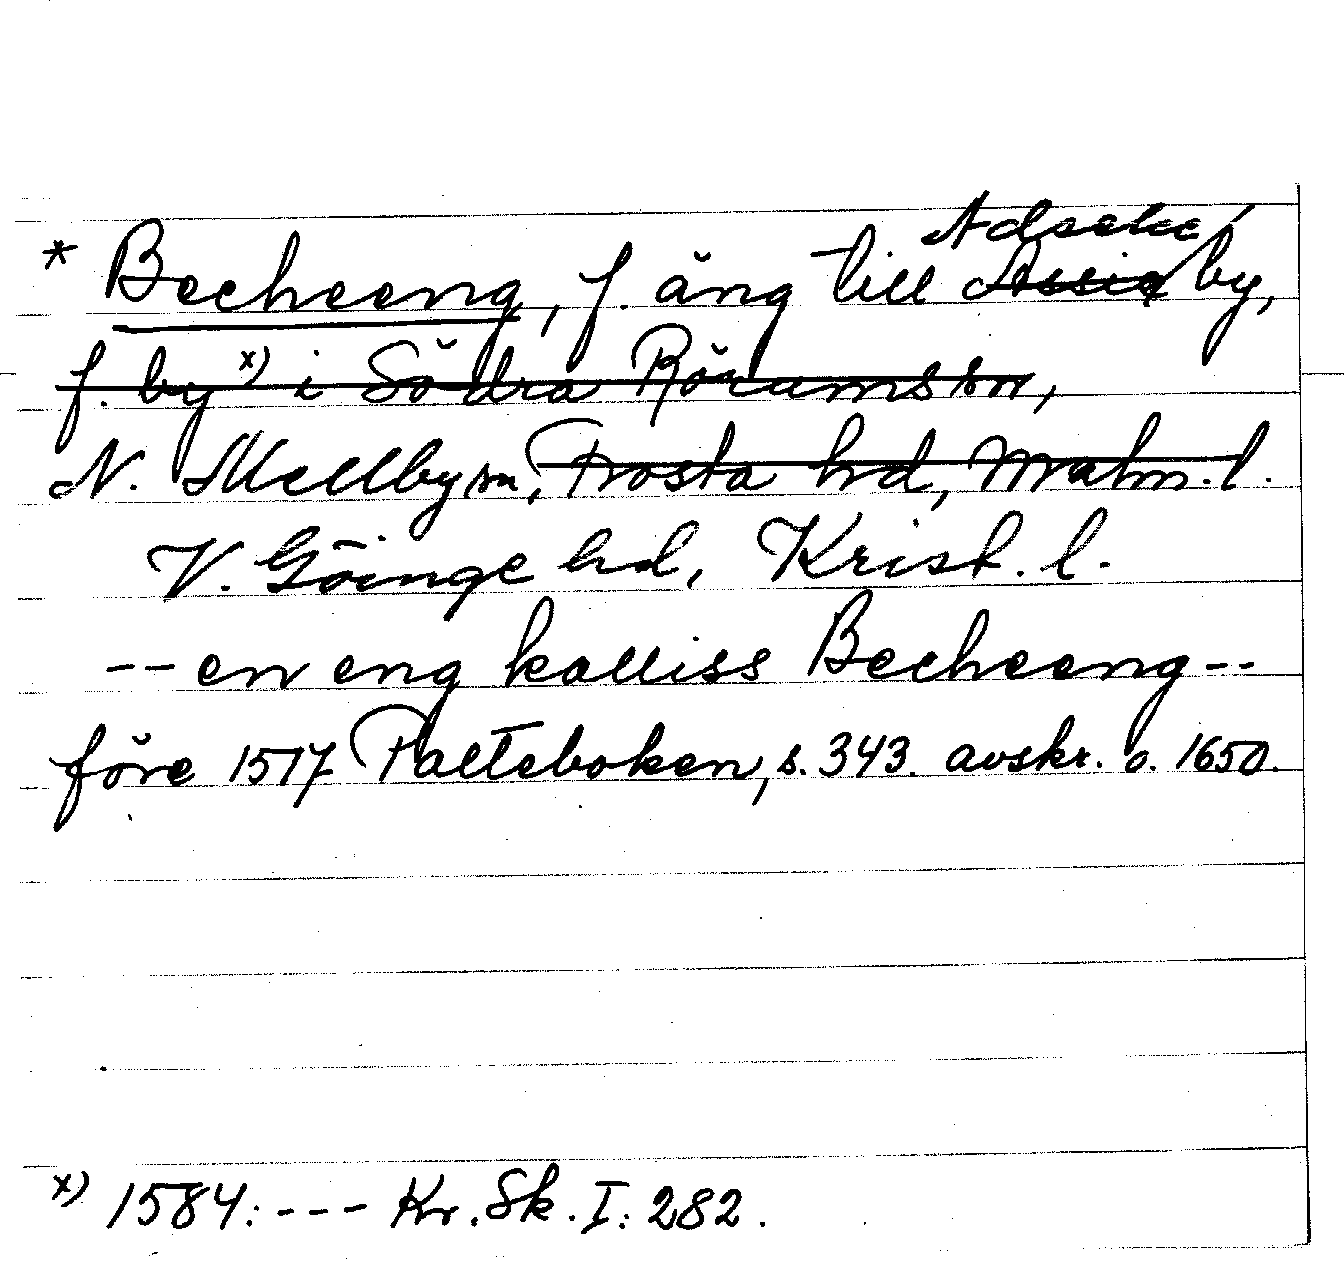 Adseke
* Becheeng, f. äng till Assig by,
f. by x) i Södra Rörumssn,
N. Mellbysn, Frosta hd, Malm. l.
V. Göinge hd, Krist. l.
-- en eng kalliss Becheeng --
före 1517 Palteboken, s. 343. avskr. o. 1650.
x) 1584: --- Kr. Sk. I: 282.